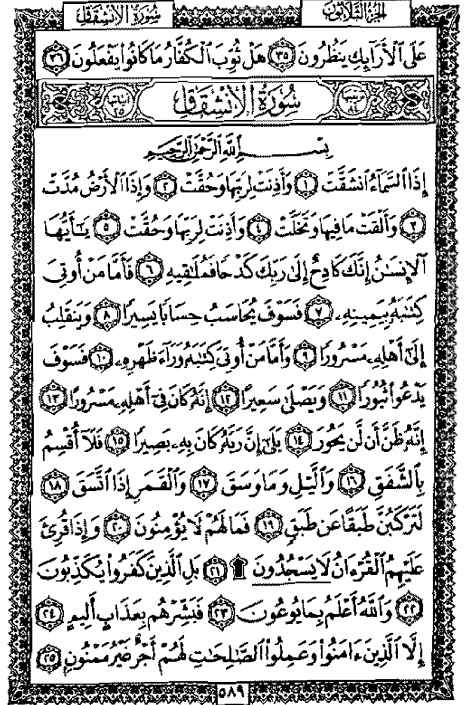 سُورَةُ الانشِقَاق الجُزءُ الثَّلاثُونَ
عَلَى ٱلْأَرَآئِكِ يَنظُرُونَ ٣٥ هَلْ ثُوِّبَ ٱلْكُفَّارُ مَا كَانُوا۟ يَفْعَلُونَ ٣٦
ترتيبها ٨٤ سُورَةُ الانشِقَاقِ آياتها ٢٥
بِسْمِ ٱللَّهِ ٱلرَّحْمَٰنِ ٱلرَّحِيمِ
إِذَا ٱلسَّمَآءُ ٱنشَقَّتْ ١ وَأَذِنَتْ لِرَبِّهَا وَحُقَّتْ ٢ وَإِذَا ٱلْأَرْضُ مُدَّتْ
٣ وَأَلْقَتْ مَا فِيهَا وَتَخَلَّتْ ٤ وَأَذِنَتْ لِرَبِّهَا وَحُقَّتْ ٥ يَٰٓأَيُّهَا
ٱلْإِنسَٰنُ إِنَّكَ كَادِحٌ إِلَىٰ رَبِّكَ كَدْحًا فَمُلَٰقِيهِ ٦ فَأَمَّا مَنْ أُوتِىَ
كِتَٰبَهُۥ بِيَمِينِهِۦ ٧ فَسَوْفَ يُحَاسَبُ حِسَابًا يَسِيرًا ٨ وَيَنقَلِبُ
إِلَىٰٓ أَهْلِهِۦ مَسْرُورًا ٩ وَأَمَّا مَنْ أُوتِىَ كِتَٰبَهُۥ وَرَآءَ ظَهْرِهِۦ ١٠ فَسَوْفَ
يَدْعُوا۟ ثُبُورًا ١١ وَيَصْلَىٰ سَعِيرًا ١٢ إِنَّهُۥ كَانَ فِىٓ أَهْلِهِۦ مَسْرُورًا ١٣
إِنَّهُۥ ظَنَّ أَن لَّن يَحُورَ ١٤ بَلَىٰٓ إِنَّ رَبَّهُۥ كَانَ بِهِۦ بَصِيرًا ١٥ فَلَآ أُقْسِمُ
بِٱلشَّفَقِ ١٦ وَٱلَّيْلِ وَمَا وَسَقَ ١٧ وَٱلْقَمَرِ إِذَا ٱتَّسَقَ ١٨
لَتَرْكَبُنَّ طَبَقًا عَن طَبَقٍ ١٩ فَمَا لَهُمْ لَا يُؤْمِنُونَ ٢٠ وَإِذَا قُرِئَ
عَلَيْهِمُ ٱلْقُرْءَانُ لَا يَسْجُدُونَ ۩ ٢١ بَلِ ٱلَّذِينَ كَفَرُوا۟ يُكَذِّبُونَ
٢٢ وَٱللَّهُ أَعْلَمُ بِمَا يُوعُونَ ٢٣ فَبَشِّرْهُم بِعَذَابٍ أَلِيمٍ ٢٤
إِلَّا ٱلَّذِينَ ءَامَنُوا۟ وَعَمِلُوا۟ ٱلصَّٰلِحَٰتِ لَهُمْ أَجْرٌ غَيْرُ مَمْنُونٍ ٢٥
٥٨٩